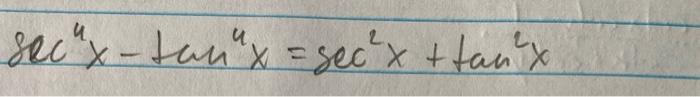 sec⁴x - tan⁴x = sec²x + tan²x